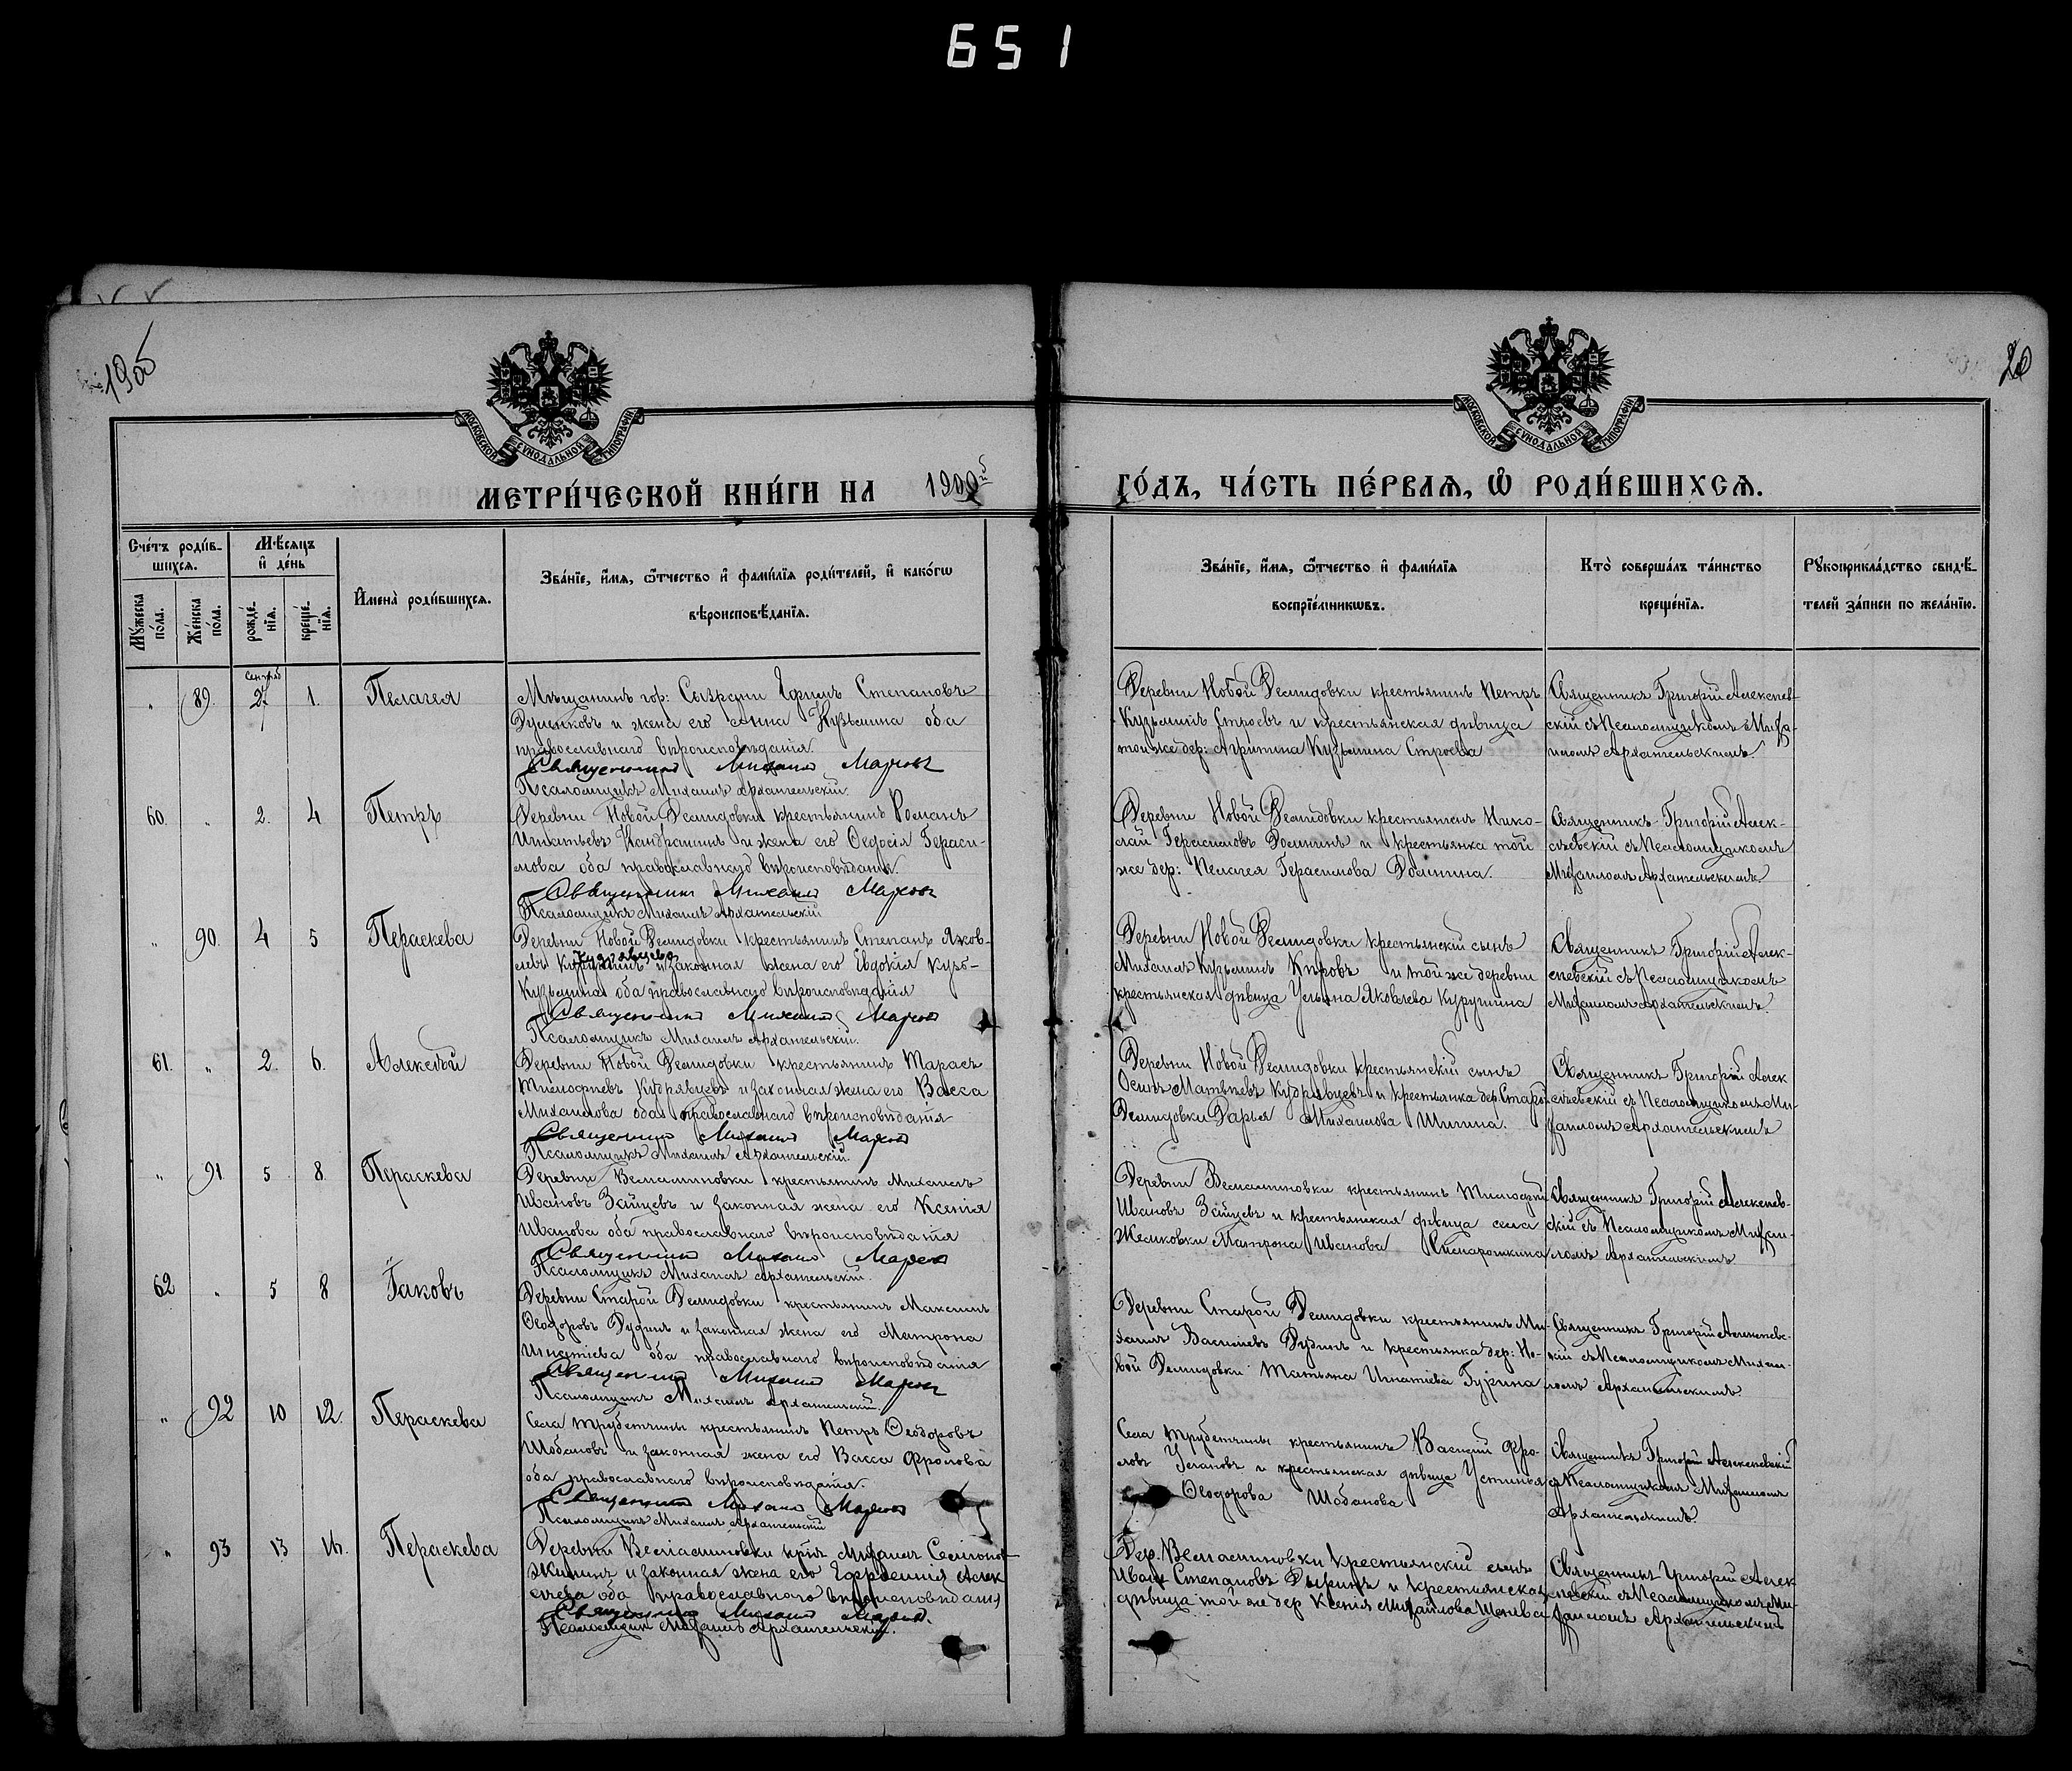 651
1905
20
МОСКОВСКОЙ СѴНОДАЛЬНОЙ ТИПОГРАФІИ
МОСКОВСКОЙ СѴНОДАЛЬНОЙ ТИПОГРАФІИ
МЕТРИ́ЧЕСКОЙ КНИ́ГИ НА
ГО́ДЪ, ЧА́СТЬ ПЕ́РВАѦ, Ѡ РОДИ́ВШИХСѦ.
Сче́тъ роди́в-
шихсѧ.
Мѣ́сѧцъ
и҆ де́нь
Мꙋ́жеска по́ла.
Же́нска по́ла.
рожде́-
нїѧ.
креще́-
нїѧ.
И҆мена̀ роди́вшихсѧ.
Зва́нїе, и҆́мѧ, ѻ҆́тчество и҆ фами́лїѧ роди́телей, и҆ како́гѡ
вѣроисповѣ́данїѧ.
Зва́нїе, и҆́мѧ, ѻ҆́тчество и҆ фами́лїѧ
воспрїе́мникѡвъ.
Кто̀ соверша́лъ та́инство
креще́нїѧ.
Рꙋкоприкла́дство свидѣ́-
телей за́писи по жела́нїю.
" 89. 27 1. Пелагея
Мѣщанинъ гор: Сызрани Ефимъ Степановъ
и жена его Анна Кузьмина оба
православнаго вѣроисповѣданія.
Священникъ Михаилъ
Псаломщикъ Михаилъ Архангельскій.
Деревни Новой Демидовки крестьянинъ Петръ
Кузьминъ Строевъ и крестьянская дѣвица
той же дер: Кузьмина Строева
Священникъ Григорій Алексѣев-
скій съ Псаломщикомъ Миха-
иломъ Архангельскимъ.
60. " 2. 4 Петръ
Деревни Новой Демидовки крестьянинъ Романъ
Игнатьевъ и жена его Ѳедосія Гераси-
мова оба православнаго вѣроисповѣданія.
Священникъ Михаилъ
Псаломщикъ Михаилъ Архангельскій
Деревни Новой Демидовки крестьянинъ Нико-
лай Герасимовъ и крестьянка той
же дер: Пелагея Герасимова
Священникъ Григорій Алек-
сѣевскій съ Псаломщикомъ
Михаиломъ Архангельскимъ.
" 90. 4 5 Параскева
Деревни Новой Демидовки крестьянинъ Степанъ Яков-
левъ и законная жена его Евдокія
Кузьмина оба православнаго вѣроисповѣданія
Священникъ Михаилъ
Псаломщикъ Михаилъ Архангельскій.
Деревни Новой Демидовки крестьянскій сынъ
Михаилъ Кузьминъ и той же деревни
крестьянская дѣвица Ульяна Яковлева
Священникъ Григорій Алек-
сѣевскій съ Псаломщикомъ
Михаиломъ Архангельскимъ.
61. " 2. 6. Алексѣй
Деревни Новой Демидовки крестьянинъ Тарасъ
Тимофѣевъ Кудрявцевъ и законная жена его Васса
Михаилова оба православнаго вѣроисповѣданія
Священникъ Михаилъ
Псаломщикъ Михаилъ Архангельскій.
Деревни Новой Демидовки крестьянскій сынъ
Осипъ Матвѣевъ Кудрявцевъ и крестьянка дер. Старо
Демидовки Дарья Михаилова Шигина.
Священникъ Григорій Алек
сѣевскій съ Псаломщикомъ Ми-
хаиломъ Архангельскимъ
" 91 5 8. Параскева
Деревни крестьянинъ Михаилъ
Ивановъ Зайцевъ и законная жена его Ксенія
Иванова оба православнаго вѣроисповѣданія
Священникъ Михаилъ
Псаломщикъ Михаилъ Архангельскій.
Деревни крестьянинъ Тимофей
Ивановъ Зайцевъ и крестьянская дѣвица села
Матрона Иванова
Священникъ Григорій Алексѣев-
скій съ Псаломщикомъ Михаи-
ломъ Архангельскимъ
62 " 5 8 Іаковъ
Деревни Старой Демидовки крестьянинъ Максимъ
Ѳеодоровъ Дудинъ и законная жена его Матрона
Игнатіева оба православнаго вѣроисповѣданія
Священникъ Михаилъ
Псаломщикъ Михаилъ Архангельскій.
Деревни Старой Демидовки крестьянинъ Ми-
хаилъ Василіевъ Дудинъ и крестьянка дер: Но-
вой Демидовки Татьяна Игнатіева Гурина
Священникъ Григорій Алексѣевс-
кій съ Псаломщикомъ Михаи-
ломъ Архангельскимъ.
" 92 10 12. Параскева
Села Трубетчины крестьянинъ Петръ Ѳеодоровъ
Шабановъ и законная жена его Васса Фролова
оба православнаго вѣроисповѣданія.
Священникъ Михаилъ
Псаломщикъ Михаилъ Архангельскій
Села Трубетчины крестьянинъ Василій Фро-
ловъ и крестьянская дѣвица Устинья
Ѳеодорова Шабанова
Священникъ Григорій Алексѣевскій
съ Псаломщикомъ Михаиломъ
Архангельскимъ.
" 93 13 Параскева
Деревни Михаилъ
и законная жена его Алек
сѣева оба православнаго вѣроисповѣданія
Священникъ Михаилъ
Псаломщикъ Михаилъ Архангельскій.
Дер. крестьянскій сынъ
Иванъ Степановъ и крестьянская
дѣвица той же дер Ксенія Михайлова
Священникъ Григорій Алек
сѣевскій съ Псаломщикомъ Ми-
хаиломъ Архангельскимъ